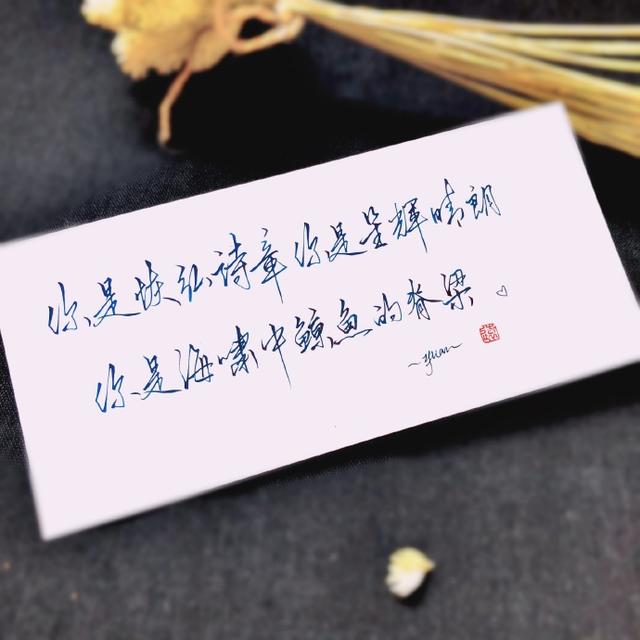 你是恢弘诗章 你是星辉晴朗
你是海啸中鲸鱼的脊梁
~yuan~